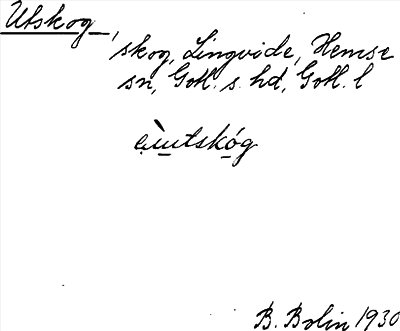 Utskog,
skog, Lingvide, Hemse
sn, Gotl. s. hd, Gotl. l
B. Bolin 1930